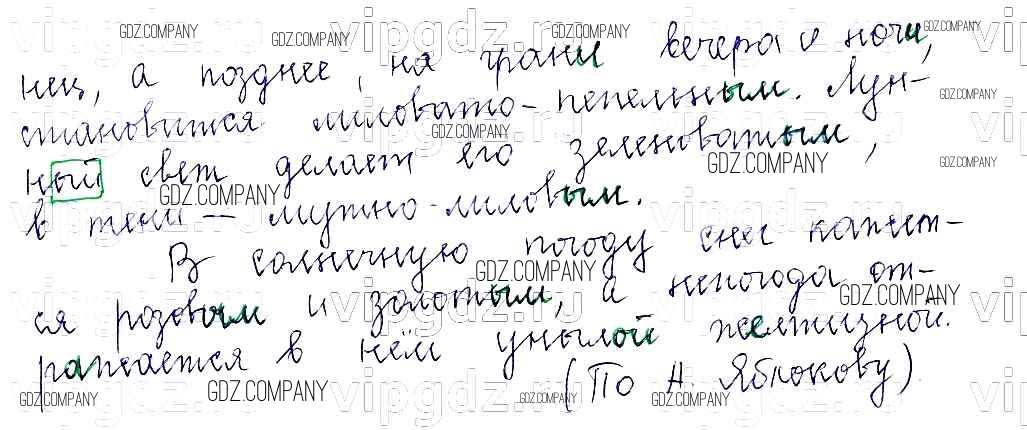 нец, а позднее, на грани вечера и ночи,
становится лиловато-пепельным. Лун-
ный свет делает его зеленоватым,
в тени — мутно-лиловым.
В солнечную погоду снег кажет-
ся розовым и золотым, а непогода от-
ражается в нём унылой желтизной.
(По А. Яблокову)